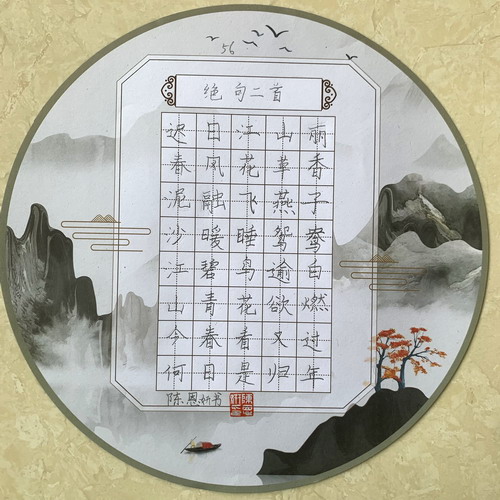 56
绝句二首
迟日江山丽
春风花草香
泥融飞燕子
沙暖睡鸳鸯
江碧鸟逾白
山青花欲燃
今春看又过
何日是归年
陈恩妍书